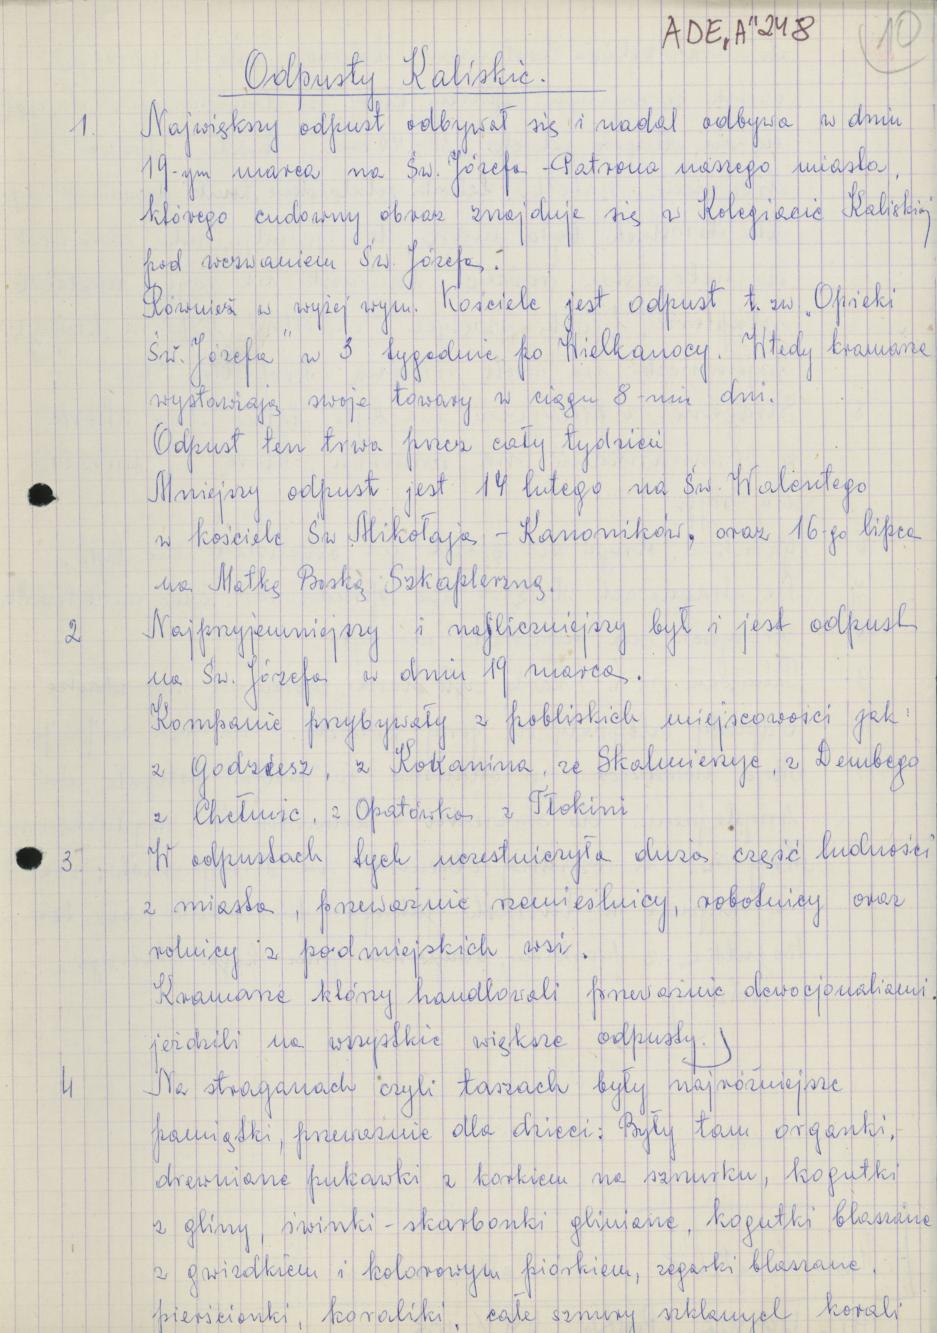 ADE „A" 248
10
Odpusty Kaliskie.
1. Największy odpust odbywał się i nadal odbywa w dniu
19-ym marca na Św. Józefa - Patrona naszego miasta,
którego cudowny obraz znajduje się w Kolegiacie Kaliskiej
pod wezwaniem Św. Józefa.
Również w wyżej wym. Kościele jest odpust t. zw. „Opieki
Św. Józefa" w 3 tygodnie po Wielkanocy. Wtedy kramarze
wystawiają swoje towary w ciągu 8-miu dni.
Odpust ten trwa przez cały tydzień
Mniejszy odpust jest 14 lutego na Św. Walentego
w kościele Św Mikołaja - Kanoników, oraz 16-go lipca
na Matkę Boską Szkaplerzną.
2 Najprzyjemniejszy i najliczniejszy był i jest odpust
na Św. Józefa w dniu 19 marca.
Kompanie przybywały z pobliskich miejscowości jak:
z Godziesz, z Kokanina, ze Skalmierzyc, z Dembego
z Chełmic, z Opatówka z Tłokini
3. W odpustach tych uczestniczyła duża część ludności
z miasta, przeważnie rzemieślnicy, robotnicy oraz
rolnicy z podmiejskich wsi.
Kramarze którzy handlowali przeważnie dewocjonaliami.
jeździli na wszystkie większe odpusty.
4 Na straganach czyli taszach były najróżniejsze
pamiątki, przeważnie dla dzieci: Były tam organki,
drewniane pukawki z korkiem na sznurku, kogutki
z gliny, świnki-skarbonki gliniane, kogutki blaszane
z gwizdkiem i kolorowym piórkiem, zegarki blaszane,
pierścionki, koraliki, całe sznury szklanych korali